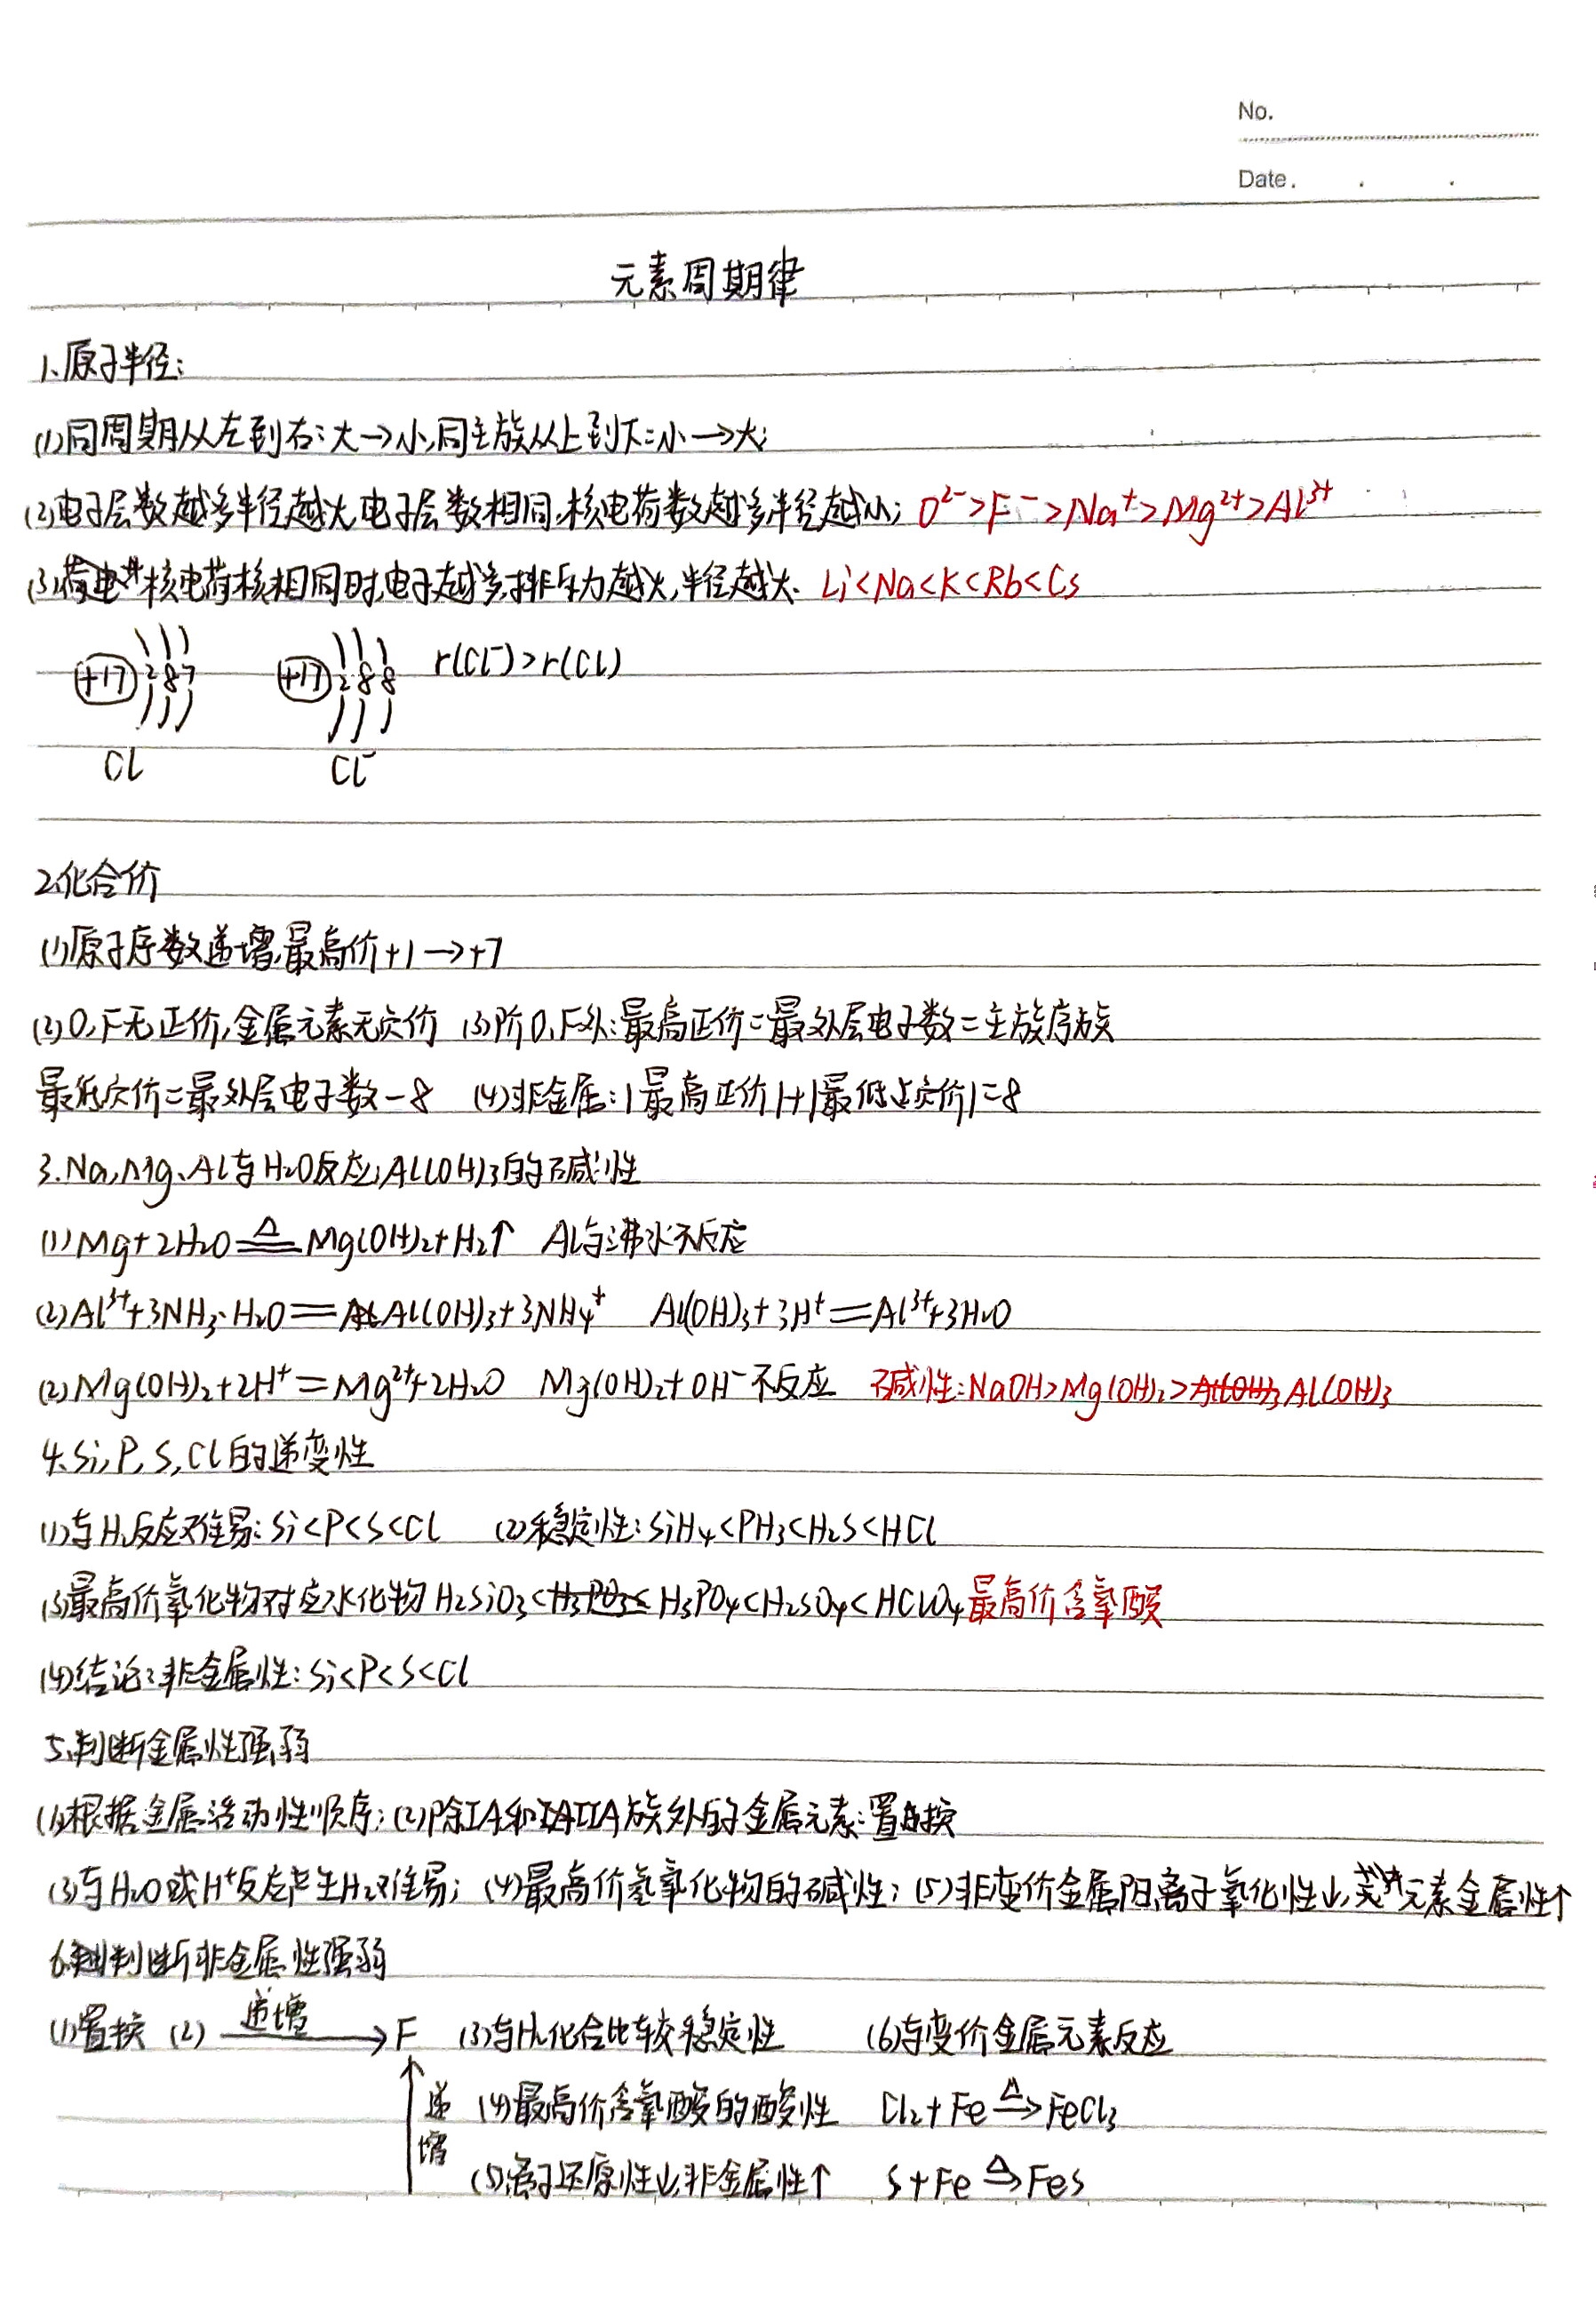 No.
Date.
元素周期律
1、原子半径:
(1)同周期从左到右:大→小,同主族从上到下:小→大;
(2)电子层数越多半径越大,电子层数相同,核电荷数越多半径越小; O²⁻>F⁻>Na⁺>Mg²⁺>Al³⁺
(3)核电荷核相同时,电子越多,排斥力越大,半径越大. Li<Na<K<Rb<Cs
+17 2 8 7 +17 2 8 8 r(Cl⁻)>r(Cl)
Cl Cl⁻
2.化合价
(1)原子序数递增,最高价+1→+7
(2)O,F无正价,金属元素无负价 (3)除O,F外:最高正价=最外层电子数=主族序族
最低负价=最外层电子数-8 (4)非金属:|最高正价|+|最低负价|=8
3.Na,Mg、Al与H₂O反应;Al(OH)₃的碱性
(1)Mg+2H₂O≜Mg(OH)₂+H₂↑ Al与沸水不反应
(2)Al³⁺+3NH₃·H₂O=Al(OH)₃+3NH₄⁺ Al(OH)₃+3H⁺=Al³⁺+3H₂O
(2)Mg(OH)₂+2H⁺=Mg²⁺+2H₂O Mg(OH)₂+OH⁻不反应 碱性:NaOH>Mg(OH)₂>Al(OH)₃
4、Si,P,S,Cl的递变性
(1)与H₂反应难易:Si<P<S<Cl (2)稳定性:SiH₄<PH₃<H₂S<HCl
(3)最高价氧化物对应水化物 H₂SiO₃<H₃PO₄<H₂SO₄<HClO₄ 最高价含氧酸
(4)结论:非金属性:Si<P<S<Cl
5、判断金属性强弱
(1)根据金属活动性顺序;(2)除IA和IIA族外的金属元素:置换
(3)与H₂O或H⁺反应产生H₂难易; (4)最高价氢氧化物的碱性; (5)非变价金属阳离子氧化性↓,元素金属性↑
6.判断非金属性强弱
(1)置换 (2) 递增 → F (3)与H₂化合比较稳定性 (6)与变价金属元素反应
↑递增 (4)最高价含氧酸的酸性 Cl₂+Fe △→ FeCl₃
(5)离子还原性↓,非金属性↑ S+Fe △→ FeS